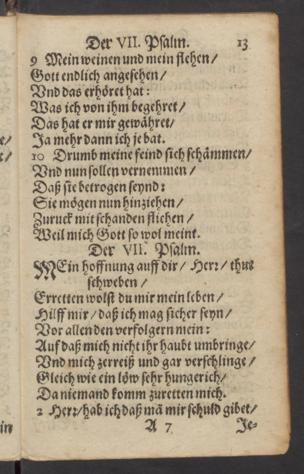 Der VII. Psalm. 13
9 Mein weinen und mein flehen /
Gott endlich angesehen /
Vnd das erhöret hat:
Was ich von ihm begehret /
Das hat er mir gewähret /
Ja mehr dann ich je bat.
10 Drumb meine feind sich schämmen /
Vnd nun sollen vernemmen /
Daß sie betrogen seynd:
Sie mögen nun hinziehen /
Zuruck mit schanden fliehen /
Weil mich Gott so wol meint.
Der VII. Psalm.
MEin hoffnung auff dir / Herr / thut
schweben /
Erretten wolst du mir mein leben /
Hilff mir / daß ich mag sicher seyn /
Vor allen den verfolgern mein:
Auf daß mich nicht ihr haubt umbringe /
Vnd mich zerreiß und gar verschlinge /
Gleich wie ein löw sehr hungerich /
Da niemand komm zuretten mich.
2 Herr / hab ich daß mā mir schuld gibet /
A 7 Je-